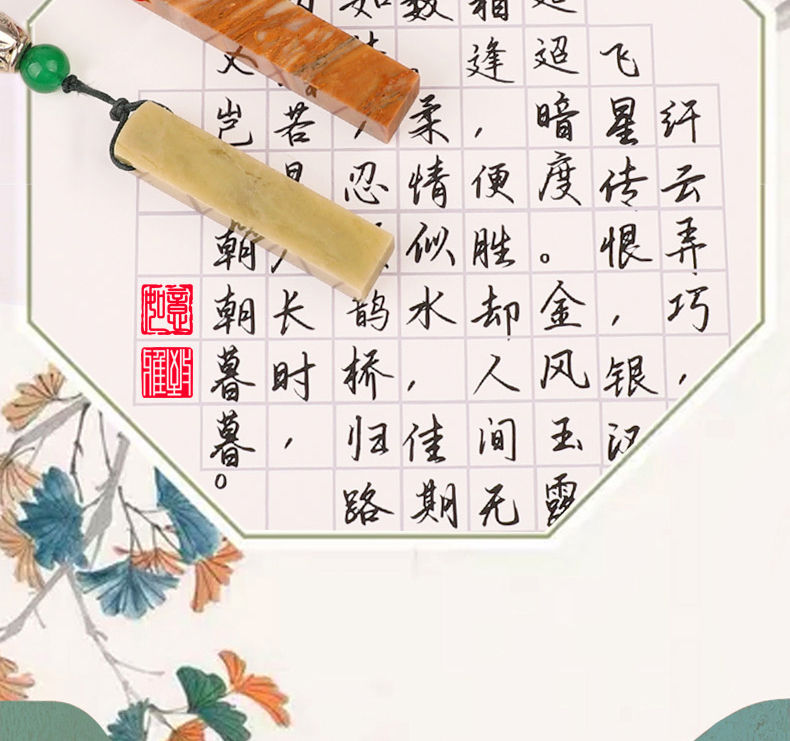 纤云弄巧，
飞星传恨，银汉
迢迢暗度。金风玉露
相逢，便胜却人间无
数。柔情似水，佳期
如，忍鹊桥归路
若是长时，
又岂朝朝暮暮。
如意